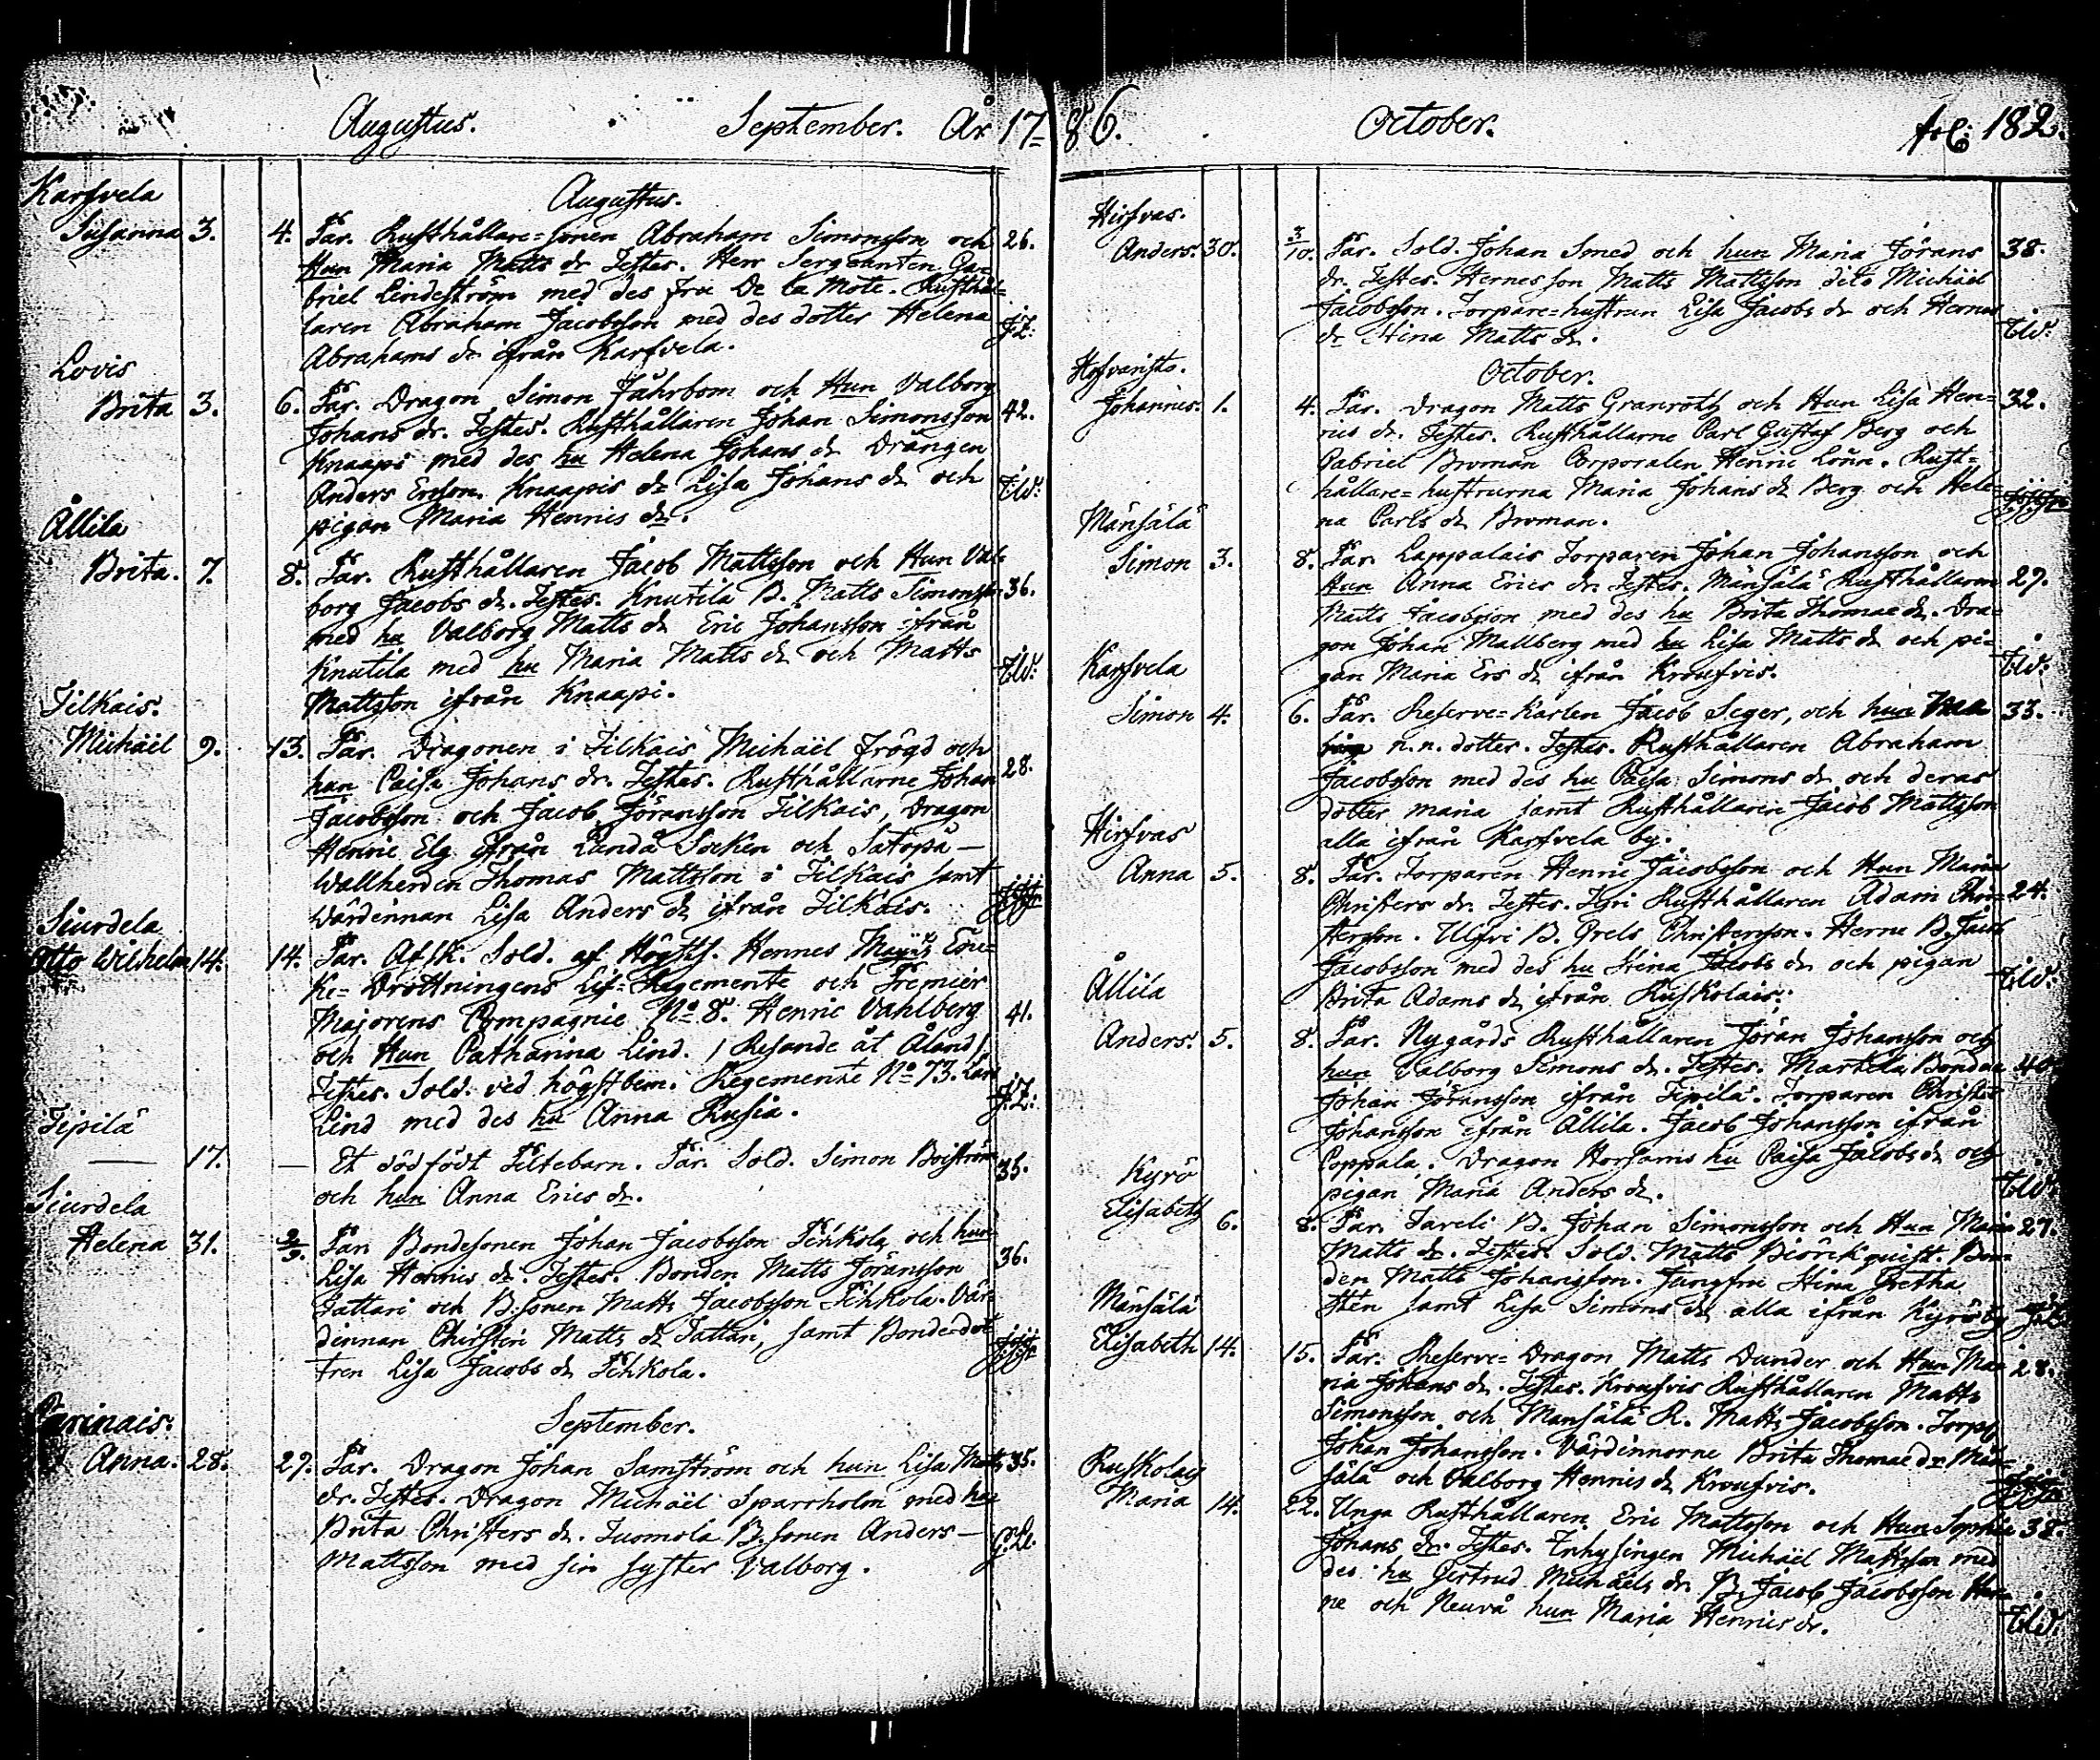 Augustus. September. År 17
Karfvela
Augustus.
Susanna 3. 4. Par. Rusthållare-sonen Abraham Simonsson och 26.
Hun Maria Matts dr Testes. Herr Sergeanten Ga-
briel Lindeström med des fru De la Mote. Rusthål-
laren Abraham Jacobsson med des dotter Helena
Abrahams dr ifrån Karfvela.
Lovis
Brita 3. 6. Par. Dragon Simon Fährbom och Hun Valborg 42.
Johans dr. Testes. Rusthållaren Johan Simonsson
Knaapi med des hu Helena Johans dr Drängen
Anders Ersson. Knaapis dr Lisa Johans dr och
pigan Maria Henrics dr.
Ållila
Brita. 7. 8. Par. Rusthållaren Jacob Mattsson och Hun Val- 36.
borg Jacobs dr. Testes. Knutila B. Matts Simonsson
med hu Valborg Matts dr Eric Johansson ifrån
Knutila med hu Maria Matts dr och Matts
Mattsson ifrån Knaapi.
Tilkais.
Michäel 9. 13. Par. Dragonen i Tilkais Michäel Frögd och 28.
hun Caisa Johans dr. Testes. Rusthållarne Johan
Jacobsson och Jacob Jöransson Tilkais, Dragon
Henric Elg ifrån Lundå Socken och Satopä-
Wallherden Thomas Mattsson i Tilkais samt
Wärdinnan Lisa Anders dr ifrån Tilkais.
Siurdela
Otto Wilhelm 14. 14. Par. Afsk. Sold. af Högtsl. Hennes Maj:ts Enc-
ke- Drottningens Lif-Regemente och Premier
Majorens Compagnie No 8. Henric Vahlberg 41.
och Hun Catharina Lind. / Resande åt Åland /
Testes. Sold. vid högstbem. Regemente No 73. Lars
Lind med des hu Anna Rusia.
Tipilä
17. Et dödfödt Piltebarn. Par. Sold. Simon Boiström 35.
och hun Anna Erics dr.
Siurdela
Helena 31. 2/9. Par. Bondesonen Johan Jacobsson Pihkola och hun 36.
Lisa Henrics dr. Testes. Bonden Matts Jöransson
Tattari och B:sonen Matts Jacobsson Pihkola. Vär-
dinnan Christin Matts dr Tattari, samt Bondedot-
tren Lisa Jacobs dr Pihkola.
September.
Carinais.
Anna. 28. 29. Par. Dragon Johan Samström och hun Lisa Matts 35.
dr. Testes. Dragon Michäel Sparrholm med hu
Brita Christers dr. Tuomola B:sonen Anders
Mattsson med sin syster Valborg.
86. October. fol: 182.
Hirfvas.
Anders. 30. 3/10. Par. Sold. Johan Smed och hun Maria Jörans 38.
dr. Testes. Hernes son Matts Mattsson dito Michäel
Jacobsson. Torpare-hustrun Lisa Jacobs dr och Hernes
dr Stina Matts dr.
October.
Hofvaristo.
Johannes. 1. 4. Par. Dragon Matts Granroth och Hun Lisa Hen- 32.
rics dr. Testes. Rusthållarne Carl Gustaf Berg och
Gabriel Broman Corporalen Henric Lönn. Rust-
hållare-hustrurna Maria Johans dr Berg och Hele-
na Carls dr Broman.
Mänsälä
Simon 3. 8. Par. Lappalais Torparen Johan Johansson och
Hun Anna Erics dr. Testes. Mänsälä Rusthållaren 29.
Matts Jacobsson med des hu Brita Thomae dr. Dra-
gon Johan Mallberg med hu Lisa Matts dr och pi-
gan Maria Ers dr ifrån Kroufvis.
Karfvela
Simon 4. 6. Par. Reserve-Karlen Jacob Seger, och hun 33.
n.n. dotter. Testes. Rusthållaren Abraham
Jacobsson med des hu Caisa Simons dr och deras
dotter maria samt Rusthållaren Jacob Mattsson
alla ifrån Karfvela by.
Hirfvas
Anna 5. 8. Par. Torparen Henric Jacobsson och Hun Maria
Christers dr. Testes. Rusthållaren Adam Chri- 24.
stersson. B. Grels Christersson. Herne B. Jacob
Jacobsson med des hu Stina Jacobs dr och pigan
Brita Adams dr ifrån Ruskolais.
Ållila
Anders. 5. 8. Par. Nygårds Rusthållaren Jöran Johansson och
hun Valborg Simons dr. Testes. Marttila Bonden 40.
Johan Jöransson ifrån Tipilä. Torparen Christer
Johansson ifrån Ållila. Jacob Johansson ifrån
Poppala. Dragon Horsams hu Caisa Jacobs dr och
pigan Maria Anders dr.
Kyrö
Elisabeth 6. 8. Par. Tareli B. Johan Simonsson och Hun Maria 27.
Matts dr. Testes. Sold. Matts Biörckquist. Bon-
den Matts Johansson. Jungfru Stina Gretha
Sten samt Lisa Simons dr alla ifrån Kyrö by
Mänsälä
Elisabeth 14. 15. Par. Reserve-Dragon Matts Dunder och Hun Ma- 28.
ria Johans dr. Testes. Kroufvis Rusthållaren Matts
Simonsson och Mansälä R. Matts Jacobsson. Torp.
Johan Johansson. Värdinnorne Brita Thomae dr Män-
sälä och Valborg Henrics dr Kroufvis.
Ruskolais
Maria 14. 22. Unga Rusthållaren Eric Mattsson och Hun Sophia 38.
Johans dr. Testes. Inhysingen Michäel Mattsson med
des hu Gertrud Michäels dr B. Jacob Jacobsson Her-
ne och Neuvå hun Maria Henrics dr.